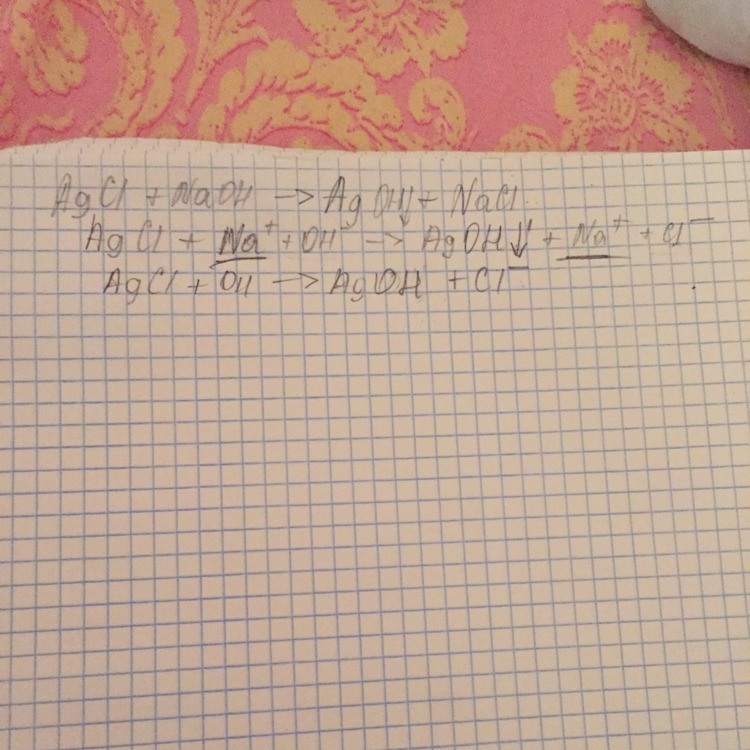 AgCl + NaOH → AgOH↓ + NaCl
AgCl + Na⁺ + OH⁻ → AgOH↓ + Na⁺ + Cl⁻
AgCl + OH → AgOH + Cl⁻